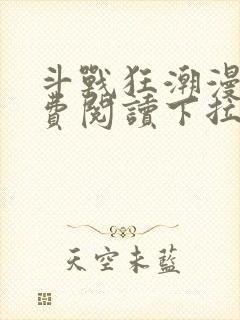 斗戰狂潮漫
費閱讀下拉
天空未藍